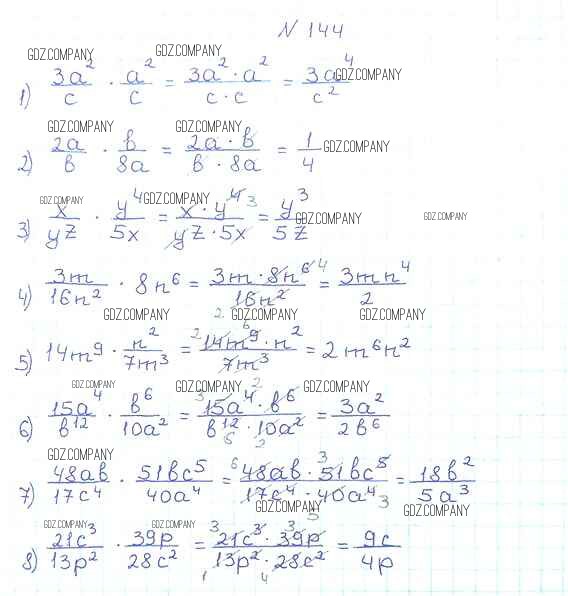 N 144
GDZ.COMPANY GDZ.COMPANY
1) 3a²/c · a²/c = 3a²·a²/c·c = 3a⁴/c² GDZ.COMPANY
GDZ.COMPANY GDZ.COMPANY
2) 2a/b · b/8a = 2a·b/b·8a = 1/4 GDZ.COMPANY
GDZ.COMPANY GDZ.COMPANY
3) x/yz · y⁴/5x = x·y⁴ ³/yz·5x = y³/5z GDZ.COMPANY GDZ.COMPANY
4) 3m/16n² · 8n⁶ = 3m·8n⁶ ⁴/16n² = 3mn⁴/2
GDZ.COMPANY 2 GDZ.COMPANY GDZ.COMPANY
5) 14m⁹ · n²/7m³ = ²14m⁹ ⁶·n²/7m³ = 2m⁶n²
GDZ.COMPANY GDZ.COMPANY GDZ.COMPANY
6) 15a⁴/b¹² · b⁶/10a² = ³15a⁴ ²·b⁶/b¹² ₆·₂10a² = 3a²/2b⁶
GDZ.COMPANY
7) 48ab/17c⁴ · 51bc⁵/40a⁴ = ⁶48ab·³51bc⁵/17c⁴·₅40a⁴ ³ = 18b²/5a³
GDZ.COMPANY GDZ.COMPANY
GDZ.COMPANY GDZ.COMPANY
8) 21c³/13p² · 39p/28c² = ³21c³·³39p/₁13p²·₄28c² = 9c/4p